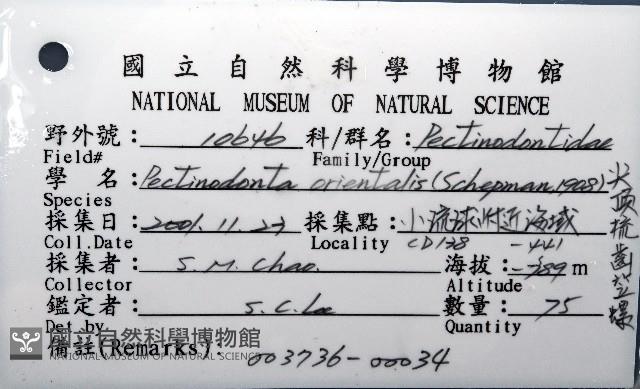 國立自然科學博物館
NATIONAL MUSEUM OF NATURAL SCIENCE
野外號: 10646 科/群名: Pectinodontidae
Field# Family/Group
學 名: Pectinodonta orientalis (Schepman, 1908)
Species
採集日: 2001.11.23 採集點: 小琉球附近海域
Coll.Date Locality CD138 -441
採集者: S. M. Chao. 海拔: m
Collector Altitude
鑑定者: S. C. 數量: 75
Det.by Quantity
備註(Remarks): 003736-00034
梳齒笠螺
國立自然科學博物館
NATIONAL MUSEUM OF NATURAL SCIENCE